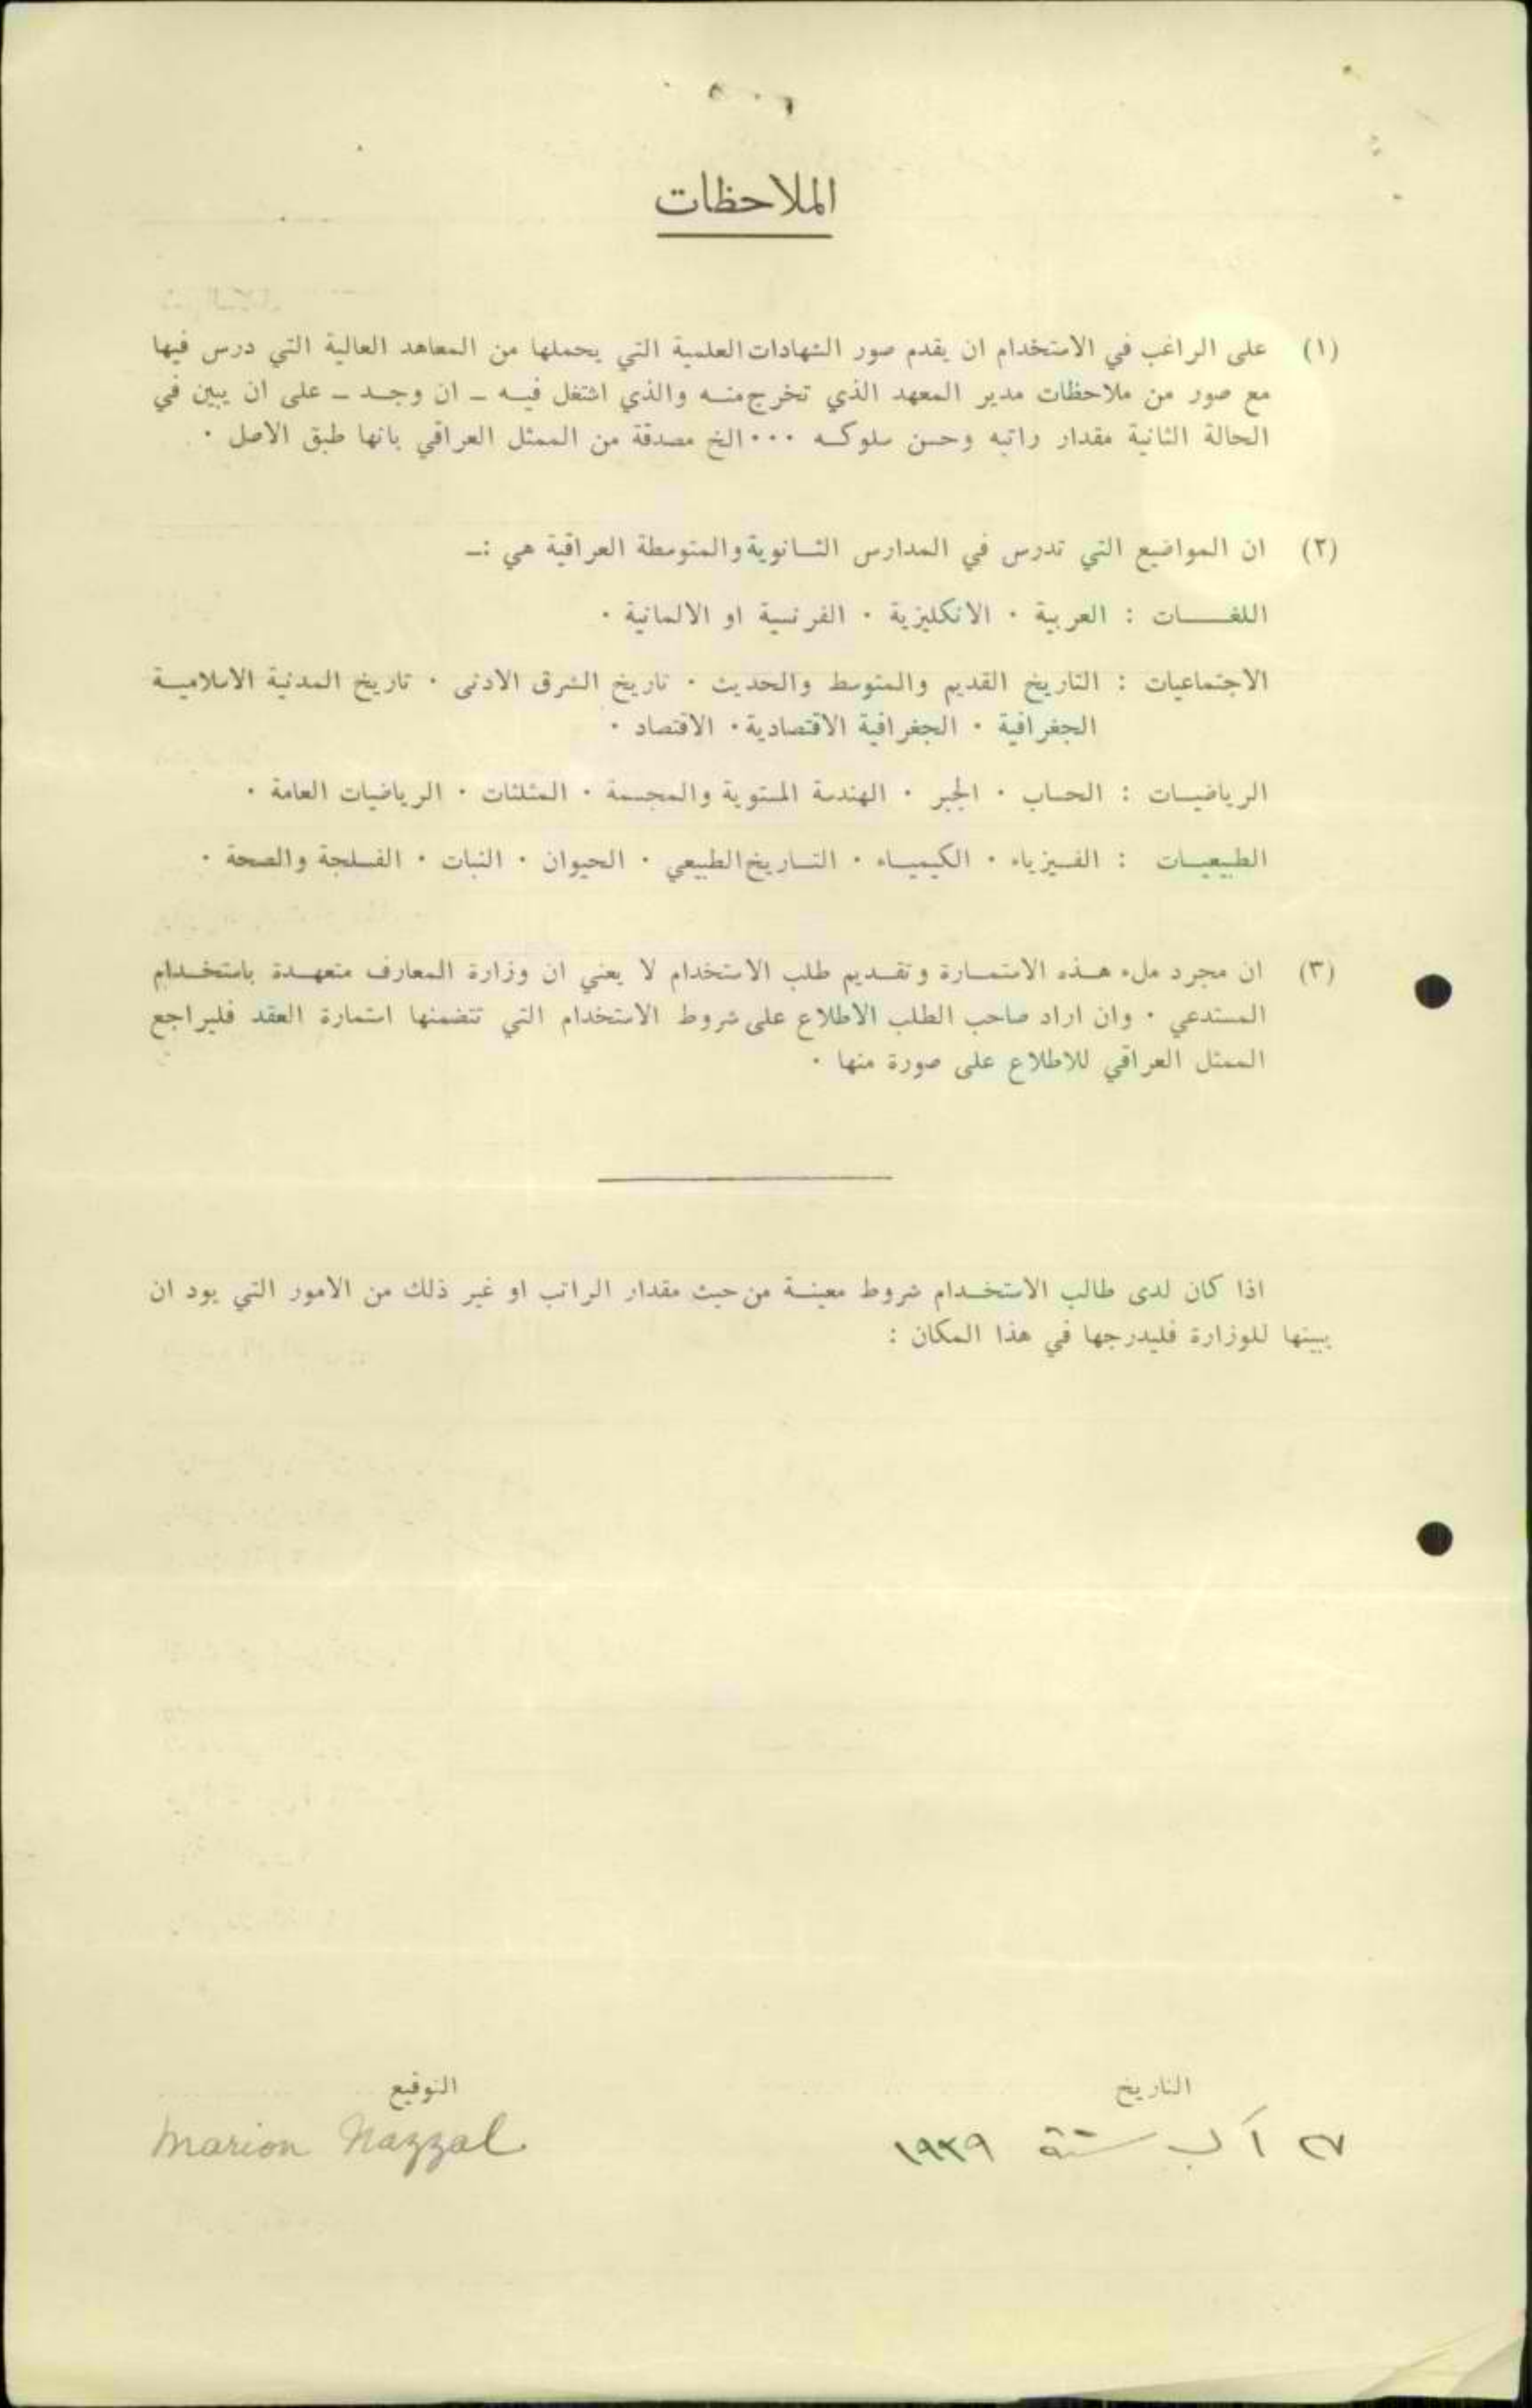 الملاحظات
(١) على الراغب في الاستخدام ان يقدم صور الشهادات العلمية التي يحملها من المعاهد العالية التي درس فيها
مع صور من ملاحظات مدير المعهد الذي تخرج منه والذي اشتغل فيه ـ ان وجد ـ على ان يبين في
الحالة الثانية مقدار راتبه وحسن سلوكه ٠٠٠ الخ مصدقة من الممثل العراقي بانها طبق الاصل ٠
(٢) ان المواضيع التي تدرس في المدارس الثانوية والمتوسطة العراقية هي :ـ
اللغات : العربية ٠ الانكليزية ٠ الفرنسية او الالمانية ٠
الاجتماعيات : التاريخ القديم والمتوسط والحديث ٠ تاريخ الشرق الادنى ٠ تاريخ المدنية الاسلامية
الجغرافية ٠ الجغرافية الاقتصادية ٠ الاقتصاد ٠
الرياضيات : الحساب ٠ الجبر ٠ الهندسة المستوية والمجسمة ٠ المثلثات ٠ الرياضيات العامة ٠
الطبيعيات : الفيزياء ٠ الكيمياء ٠ التاريخ الطبيعي ٠ الحيوان ٠ النبات ٠ الفسلجة والصحة ٠
(٣) ان مجرد ملء هذه الاستمارة وتقديم طلب الاستخدام لا يعني ان وزارة المعارف متعهدة باستخدام
المستدعي ٠ وان اراد صاحب الطلب الاطلاع على شروط الاستخدام التي تتضمنها استمارة العقد فليراجع
الممثل العراقي للاطلاع على صورة منها ٠
اذا كان لدى طالب الاستخدام شروط معينة من حيث مقدار الراتب او غير ذلك من الامور التي يود ان
يبينها للوزارة فليدرجها في هذا المكان :
التاريخ التوقيع
٢٧ آب سنة ١٩٣٩ Marion Nazzal